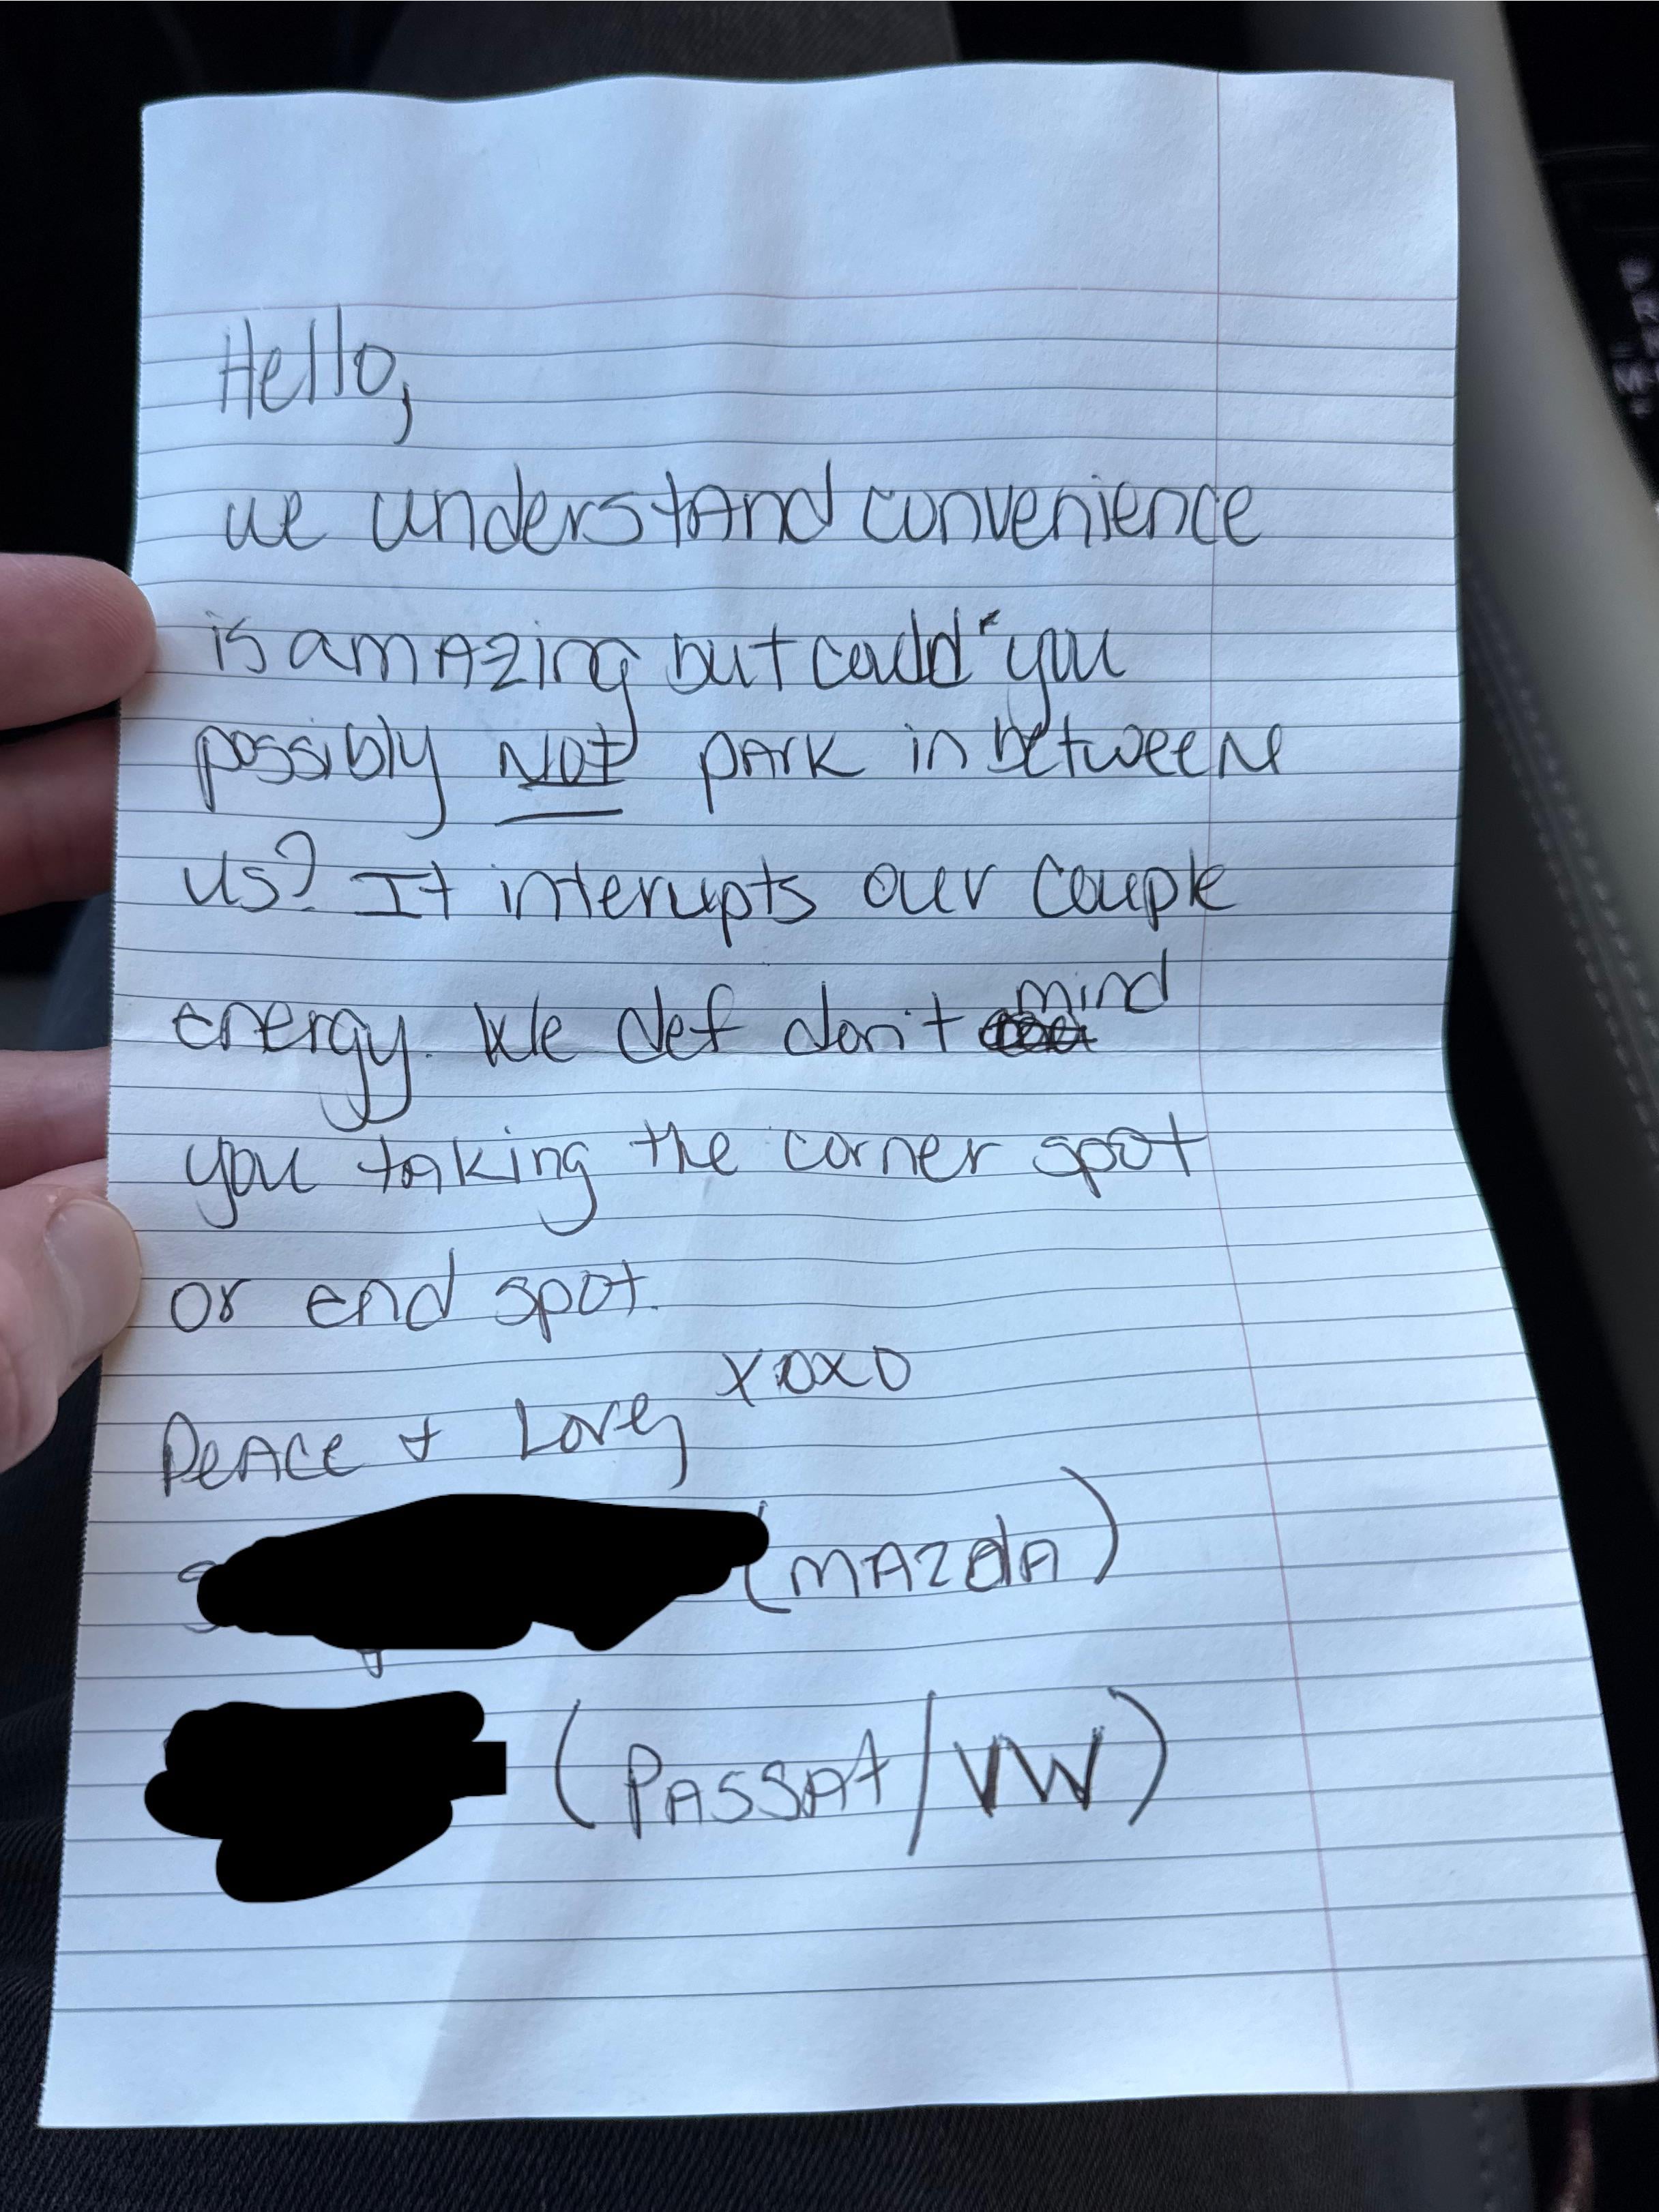 Hello,
we understand convenience
is amazing but could you
possibly NOT park in between
us? It interupts our couple
energy. We def don't mind
you taking the corner spot
or end spot.
xoxo
Peace + Love,
(Mazda)
(Passat/VW)